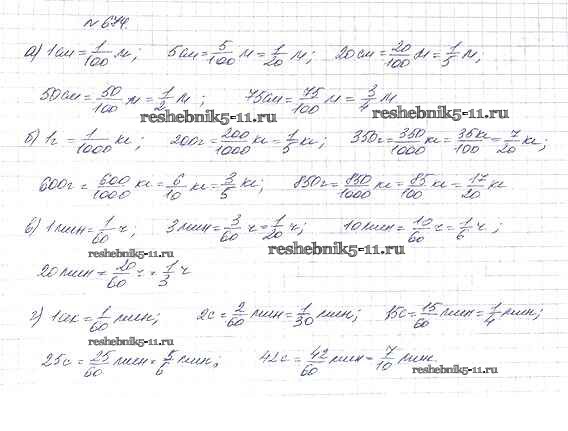 № 674.
а) 1см = 1/100 м; 5см = 5/100 м = 1/20 м; 20см = 20/100 м = 1/5 м;
50см = 50/100 м = 1/2 м; 75см = 75/100 м = 3/4 м
reshebnik5-11.ru reshebnik5-11.ru
б) 1г = 1/1000 кг; 200г = 200/1000 кг = 1/5 кг; 350г = 350/1000 кг = 35кг/100 = 7/20 кг;
600г = 600/1000 кг = 6/10 кг = 3/5 кг; 850г = 850/1000 кг = 85/100 кг = 17/20 кг
в) 1мин = 1/60 ч; 3мин = 3/60 ч = 1/20 ч; 10мин = 10/60 ч = 1/6 ч;
reshebnik5-11.ru reshebnik5-11.ru
20мин = 20/60 ч = 1/3 ч
г) 1сек = 1/60 мин; 2с = 2/60 мин = 1/30 мин; 15с = 15/60 мин = 1/4 мин;
reshebnik5-11.ru
25с = 25/60 мин = 5/6 мин; 42с = 42/60 мин = 7/10 мин.
reshebnik5-11.ru